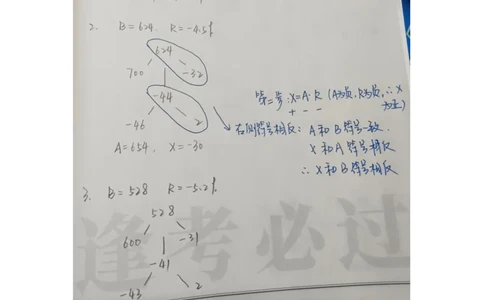 2. B=624. R=-4.5%
624
700 -32
-44
-46 2
A=654. X=-30
第二步:X=A·R (A为负,R为负,∴X为正)
+ - -
右侧符号相反: A和B符号一致.
X和A符号相反
∴ X和B符号相反
3. B=528 R=-5.2%
528
600 -31
-41
-43 2
逢考必过